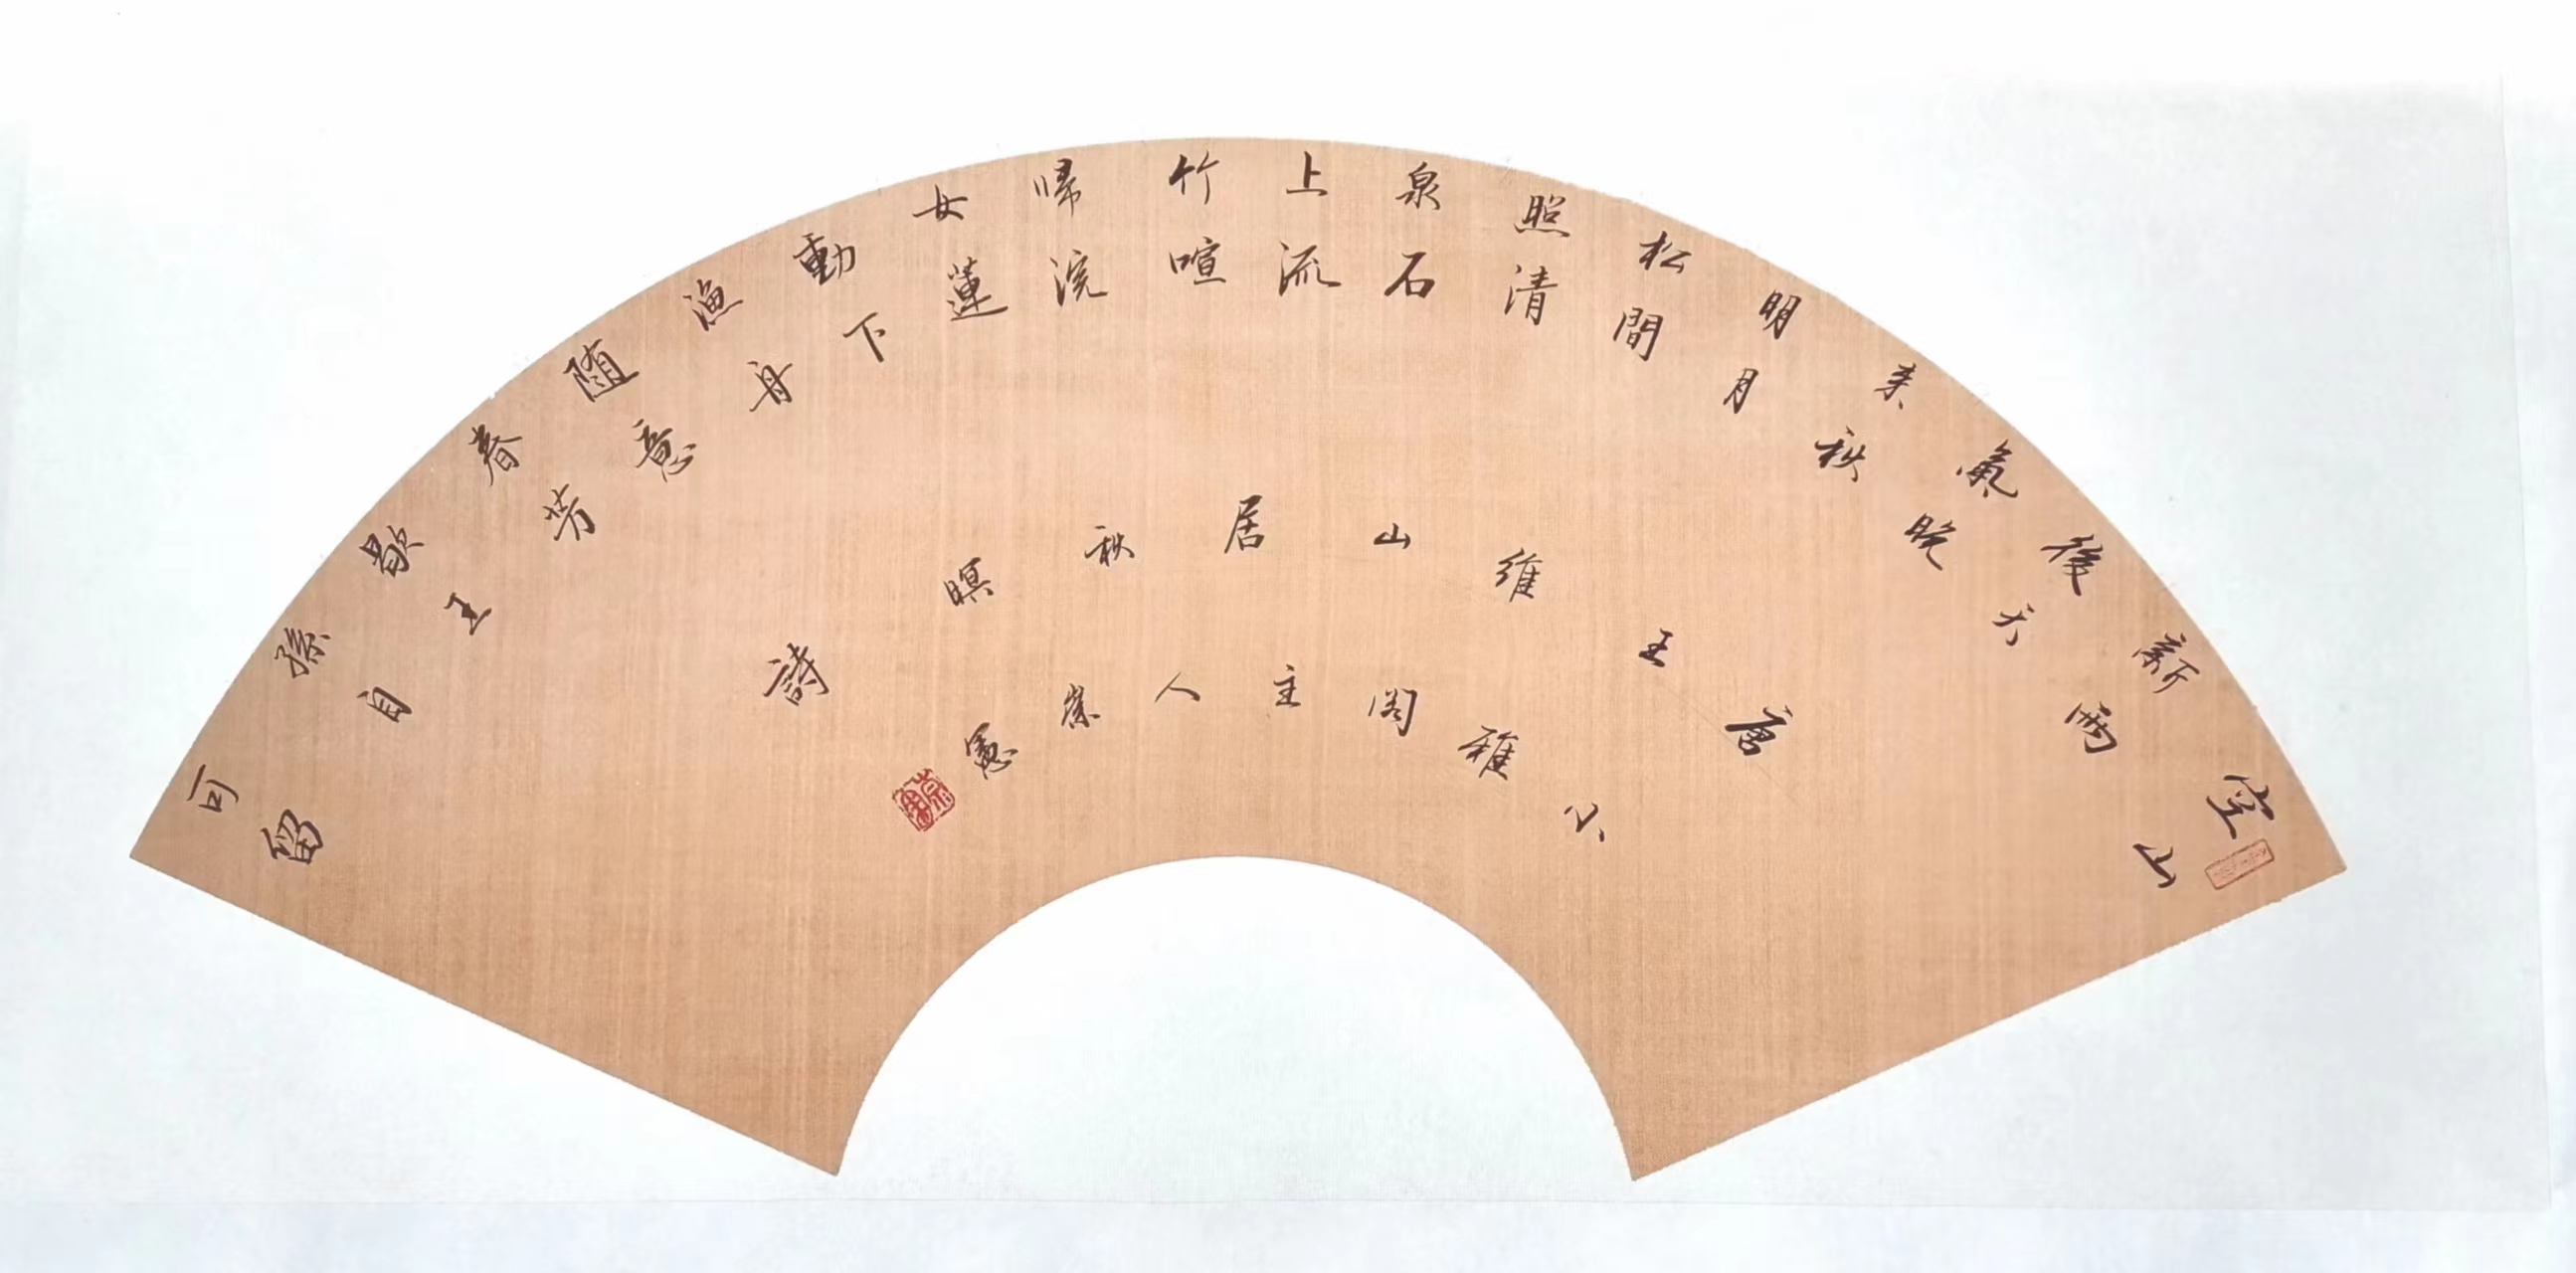 空山
新雨
後天
氣晚
来秋
明月
松間
照清
泉石
上流
竹喧
帰浣
女蓮
動下
漁舟
随意
春芳
歇王
孫自
可留
唐王維山居秋暝詩
小雅閣主人崇憲